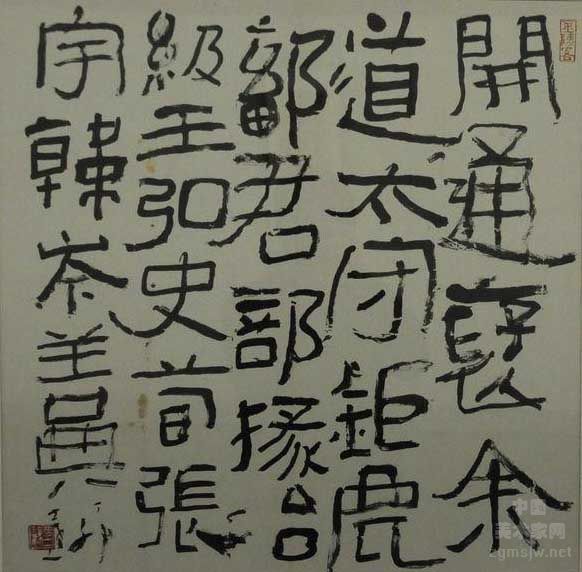 開通褒余
道太守鉅鹿
鄐君部掾治
級王弘史荀張
宇韓岑
中国
美术家网
zgmsjw.net